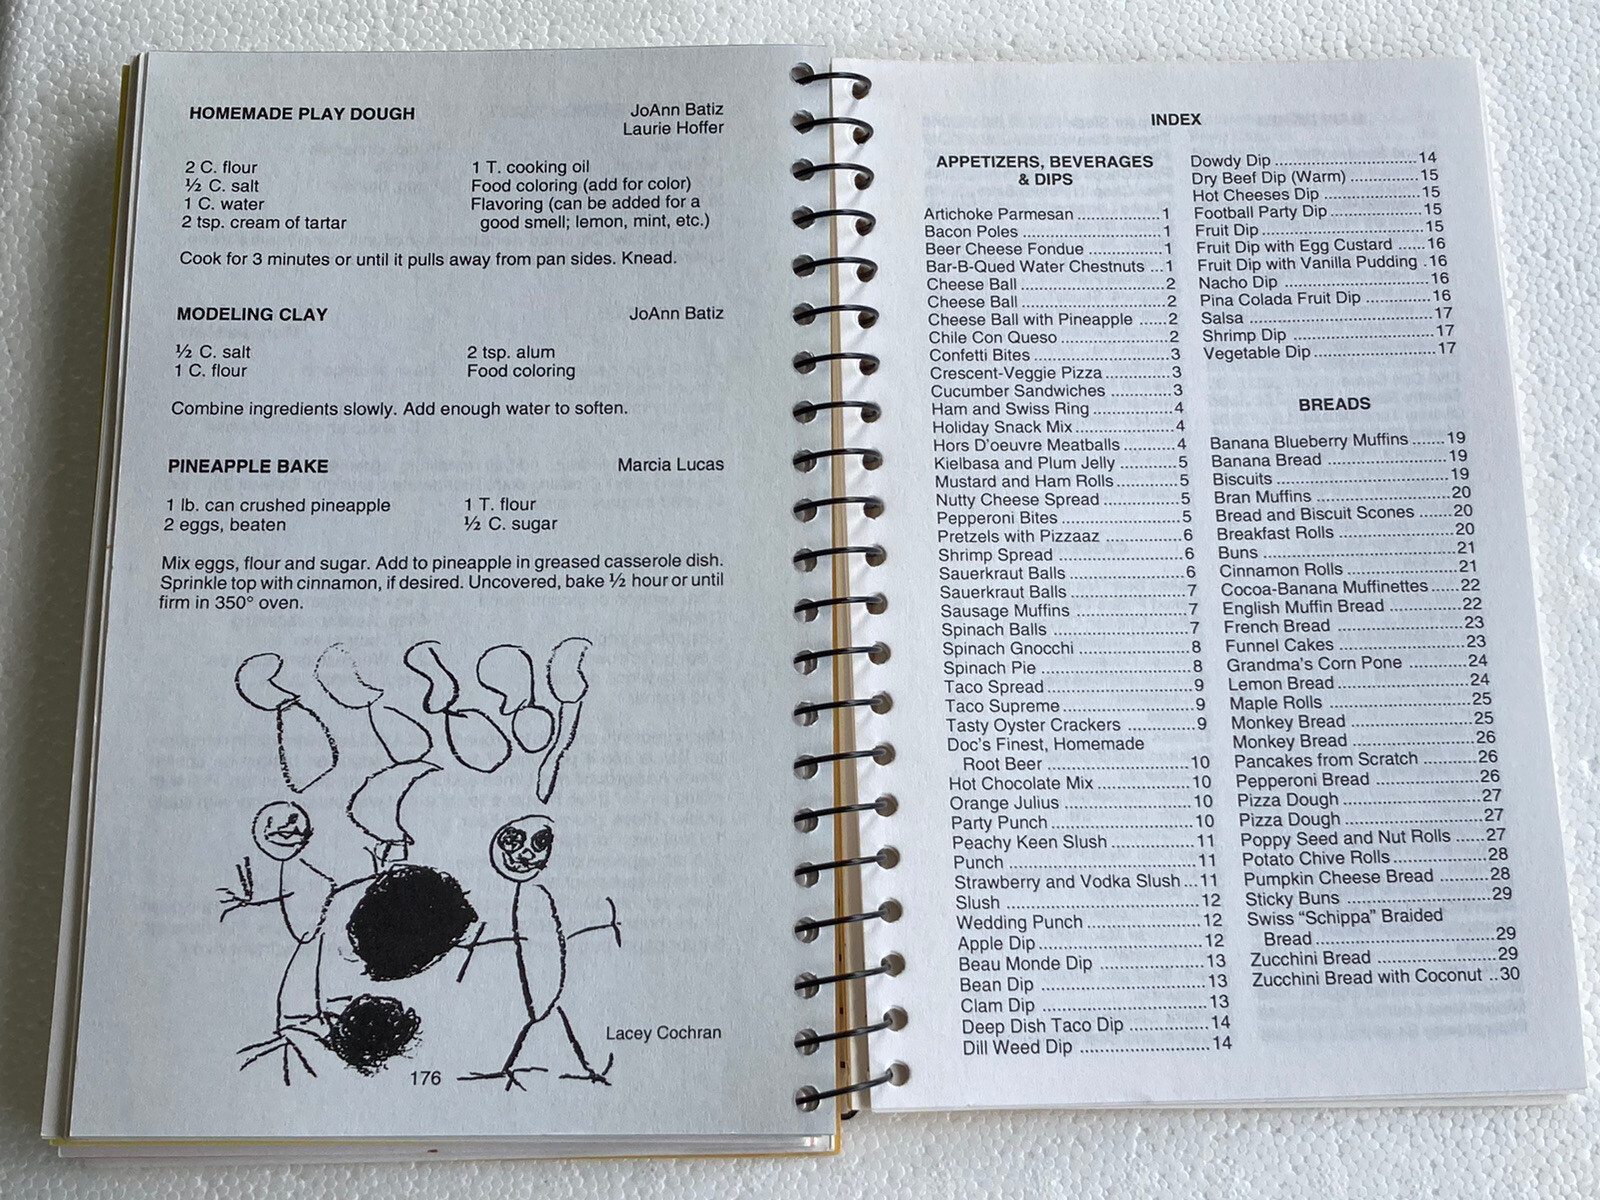 HOMEMADE PLAY DOUGH JoAnn Batiz
Laurie Hoffer
2 C. flour
½ C. salt
1 C. water
2 tsp. cream of tartar
1 T. cooking oil
Food coloring (add for color)
Flavoring (can be added for a
good smell; lemon, mint, etc.)
Cook for 3 minutes or until it pulls away from pan sides. Knead.
MODELING CLAY JoAnn Batiz
½ C. salt
1 C. flour
2 tsp. alum
Food coloring
Combine ingredients slowly. Add enough water to soften.
PINEAPPLE BAKE Marcia Lucas
1 lb. can crushed pineapple
2 eggs, beaten
1 T. flour
½ C. sugar
Mix eggs, flour and sugar. Add to pineapple in greased casserole dish.
Sprinkle top with cinnamon, if desired. Uncovered, bake ½ hour or until
firm in 350° oven.
Lacey Cochran
176
INDEX
APPETIZERS, BEVERAGES
& DIPS
Artichoke Parmesan ..............1
Bacon Poles ..............1
Beer Cheese Fondue ..............1
Bar-B-Qued Water Chestnuts ...1
Cheese Ball ..............2
Cheese Ball ..............2
Cheese Ball with Pineapple ......2
Chile Con Queso ..............2
Confetti Bites ..............3
Crescent-Veggie Pizza ..............3
Cucumber Sandwiches ..............3
Ham and Swiss Ring ..............4
Holiday Snack Mix ..............4
Hors D'oeuvre Meatballs ..........4
Kielbasa and Plum Jelly ..........5
Mustard and Ham Rolls ..........5
Nutty Cheese Spread ..............5
Pepperoni Bites ..............5
Pretzels with Pizzaaz ..............6
Shrimp Spread ..............6
Sauerkraut Balls ..............6
Sauerkraut Balls ..............7
Sausage Muffins ..............7
Spinach Balls ..............7
Spinach Gnocchi ..............8
Spinach Pie ..............8
Taco Spread ..............9
Taco Supreme ..............9
Tasty Oyster Crackers ..............9
Doc's Finest, Homemade
Root Beer ..............10
Hot Chocolate Mix ..............10
Orange Julius ..............10
Party Punch ..............10
Peachy Keen Slush ..............11
Punch ..............11
Strawberry and Vodka Slush ...11
Slush ..............12
Wedding Punch ..............12
Apple Dip ..............12
Beau Monde Dip ..............13
Bean Dip ..............13
Clam Dip ..............13
Deep Dish Taco Dip ..............14
Dill Weed Dip ..............14
Dowdy Dip ..............14
Dry Beef Dip (Warm) ..............15
Hot Cheeses Dip ..............15
Football Party Dip ..............15
Fruit Dip ..............15
Fruit Dip with Egg Custard ......16
Fruit Dip with Vanilla Pudding .16
Nacho Dip ..............16
Pina Colada Fruit Dip ..............16
Salsa ..............17
Shrimp Dip ..............17
Vegetable Dip ..............17
BREADS
Banana Blueberry Muffins .......19
Banana Bread ..............19
Biscuits ..............19
Bran Muffins ..............20
Bread and Biscuit Scones .......20
Breakfast Rolls ..............20
Buns ..............21
Cinnamon Rolls ..............21
Cocoa-Banana Muffinettes ......22
English Muffin Bread ..............22
French Bread ..............23
Funnel Cakes ..............23
Grandma's Corn Pone ..............24
Lemon Bread ..............24
Maple Rolls ..............25
Monkey Bread ..............25
Monkey Bread ..............26
Pancakes from Scratch ..............26
Pepperoni Bread ..............26
Pizza Dough ..............27
Pizza Dough ..............27
Poppy Seed and Nut Rolls ......27
Potato Chive Rolls ..............28
Pumpkin Cheese Bread ..........28
Sticky Buns ..............29
Swiss “Schippa” Braided
Bread ..............29
Zucchini Bread ..............29
Zucchini Bread with Coconut ..30